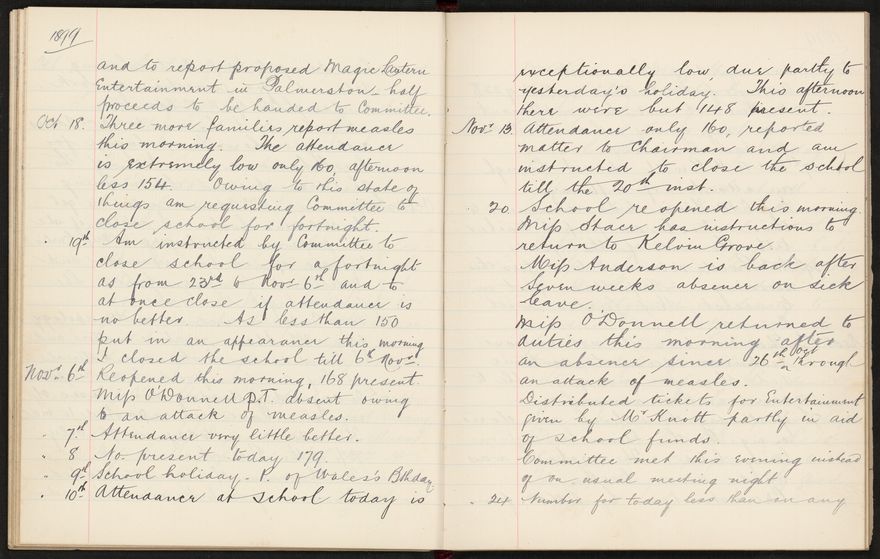 1899
and to report proposed Magic Lantern
Entertainment in Palmerston half
proceeds to be handed to Committee.
Oct 18. Three more families report measles
this morning. The attendance
is extremely low only 160, afternoon
less 154. Owing to this state of
things am requesting Committee to
close school for fortnight.
" 19th Am instructed by Committee to
close school for a fortnight
as from 23rd to Novr 6th and to
at once close if attendance is
no better. As less than 150
put in an appearance this morning
I closed the school till 6th Novr
Novr 6th Reopened this morning, 168 present.
Miss O'Donnell P.T. absent owing
to an attack of measles.
" 7th Attendance very little better.
" 8 No. present today 179.
" 9th School holiday - P. of Wales's Bthday
" 10th Attendance at school today is
exceptionally low, due partly to
yesterday's holiday. This afternoon
there were but 148 present.
Novr 13 Attendance only 160, reported
matter to Chairman and am
instructed to close the school
till the 20th inst.
" 20 School reopened this morning.
Miss Stacr has instructions to
return to Kelvin Grove.
Miss Anderson is back after
seven weeks absence on sick
leave.
Miss O'Donnell returned to
duties this morning after
an absence since 26th Oct through
an attack of measles.
Distributed tickets for Entertainment
given by Mr Knott partly in aid
of school funds.
Committee met this evening instead
of on usual meeting night
" 24 Number for today less than on any